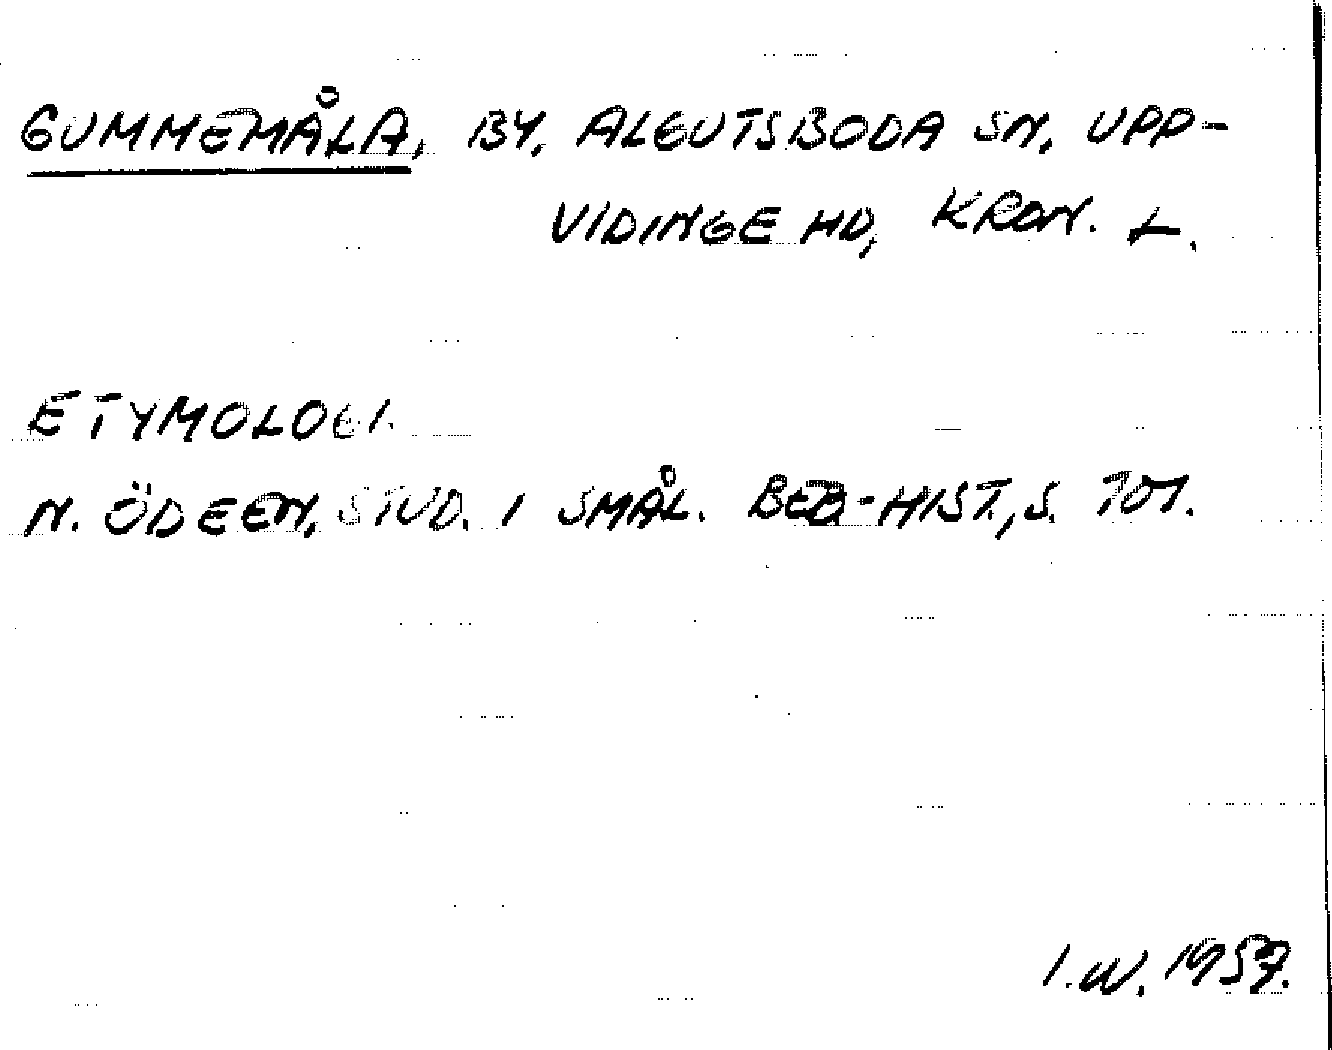 GUMMEMÅLA, BY, ALGUTSBODA SN, UPP-
VIDINGE HD, KRON. L.
ETYMOLOGI.
N. ÖDEEN, STUD. I SMÅL. BEB-HIST., S.
I.W. 1957.